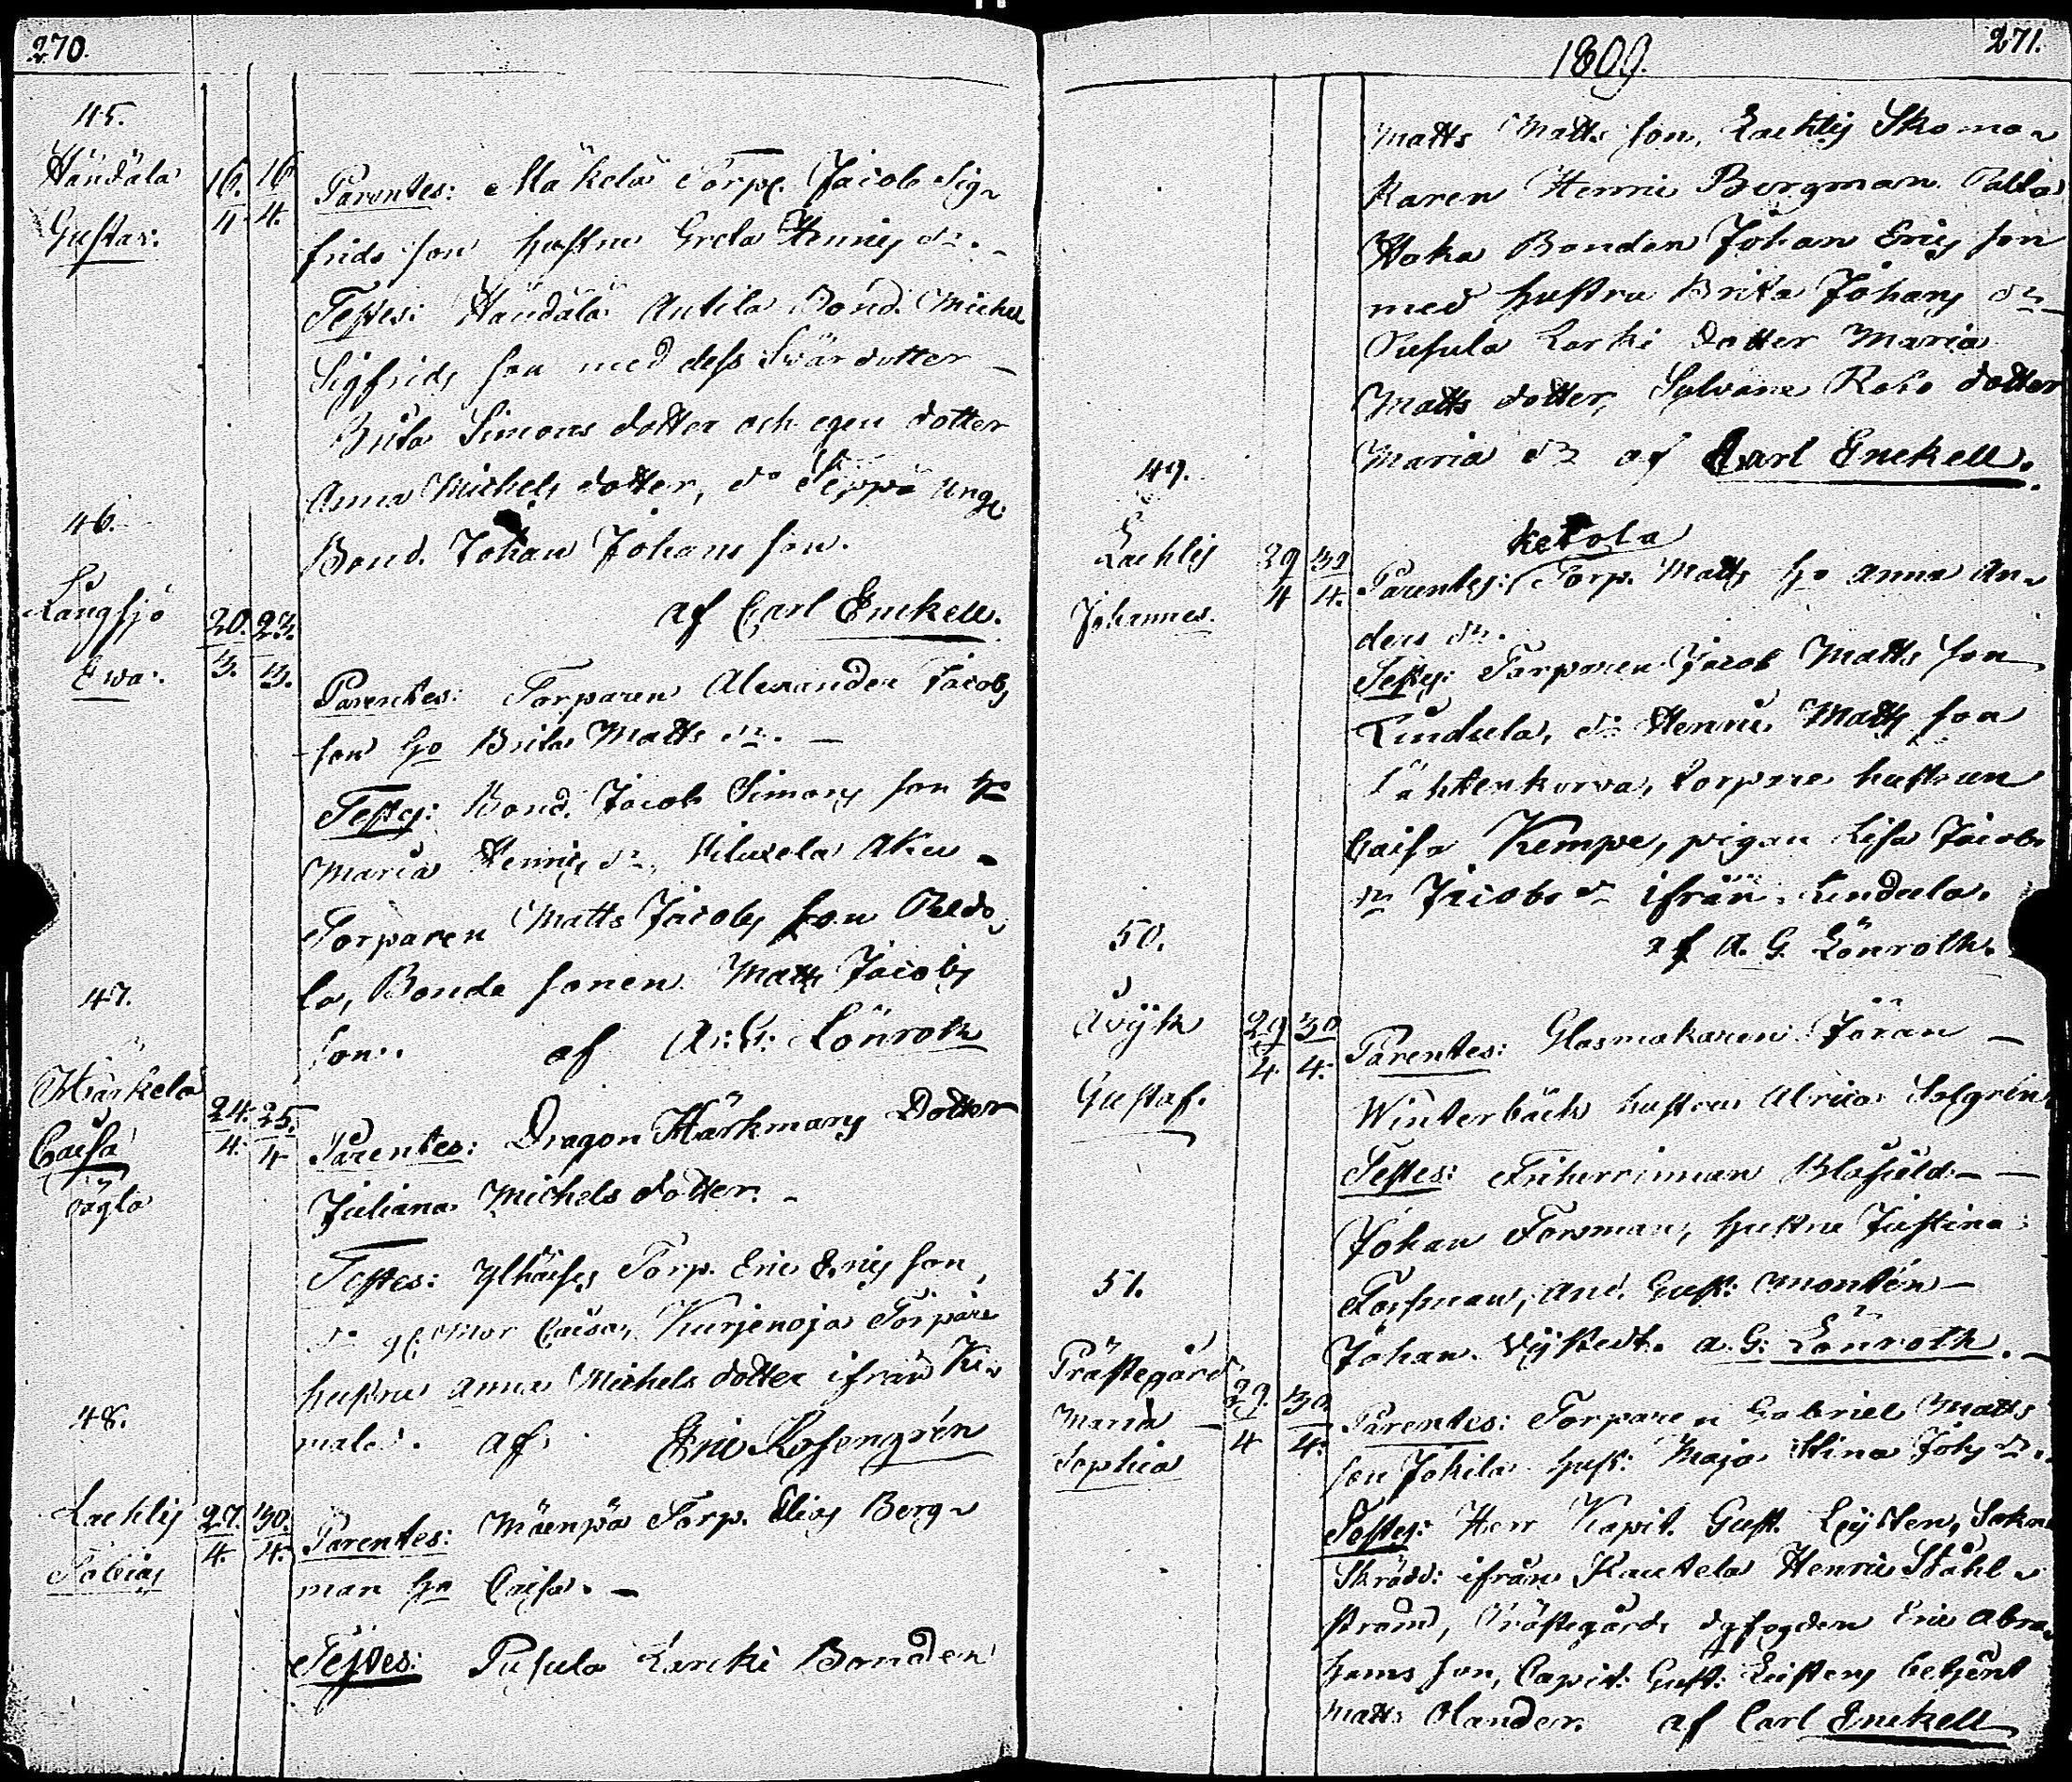 270.
45.
Händälä
Gustav:
16. 16
4 4.
Parentes: Mäkelä Torp. Jacob Sig-
frids son hustru Greta Henrics dr.
Testes: Händälä Antila Bond. Michel
Sigfrids son med dess Svärdotter
Brita Simons dotter och egen dotter
Anna Michels dotter, do Seppä unge
Bond. Johan Johans son.
af Carl Enckell.
46.
Långsjö
Ewa:
20. 23.
3. 3.
Parentes: Torparen Alexander Jacobs
son ho Brita Matts dr.
Testes: Bond. Jacob Simons son ho
Maria Henrics dr, Aku
Torparen Matts Jacobs son
la, Bonde sonen Matts Jacobs
son. af A: G: Lönroth
47.
Härkelä
Caisa
oägta
24. 25.
4. 4
Parentes: Dragon Härkmans Dotter
Juliana Michels dotter.
Testes: Torp. Eric Erics son,
Mor Caisa, Kurjenoja Torpare
hustru Anna Michels dotter ifrån Ki-
mala. af Eric Rosengrén
48.
Laehlis
Tobias
27. 30.
4. 4.
Parentes: Mäenpä Torp. Elias Berg-
man ho Caisa.
Testes: Pusula Larcki Bonden
1809.
271.
Matts Matts son, Laehlis Skoma-
karen Henric Bergman
Haka Bonden Johan Erics son
med hustru Brita Johans dr
Pusula Larki dotter Maria
Matts dotter, Solvane dotter
Maria dr af Carl Enckell.
49.
Laehlis
Johannes.
29 30
4 4.
Ketola
Parentes: Torp. Matts ho Anna An-
ders dr.
Testes: Torparen Jacob Matts son
Lindula, do Henric Matts son
Lähtenkorva, torpare hustrun
Caisa Kempe, pigan Lisa Jacobs
dr Jacobs dr ifrån Lindula.
af A. G. Lönroth.
50.
Avijk
Gustaf.
29 30
4 4.
Parentes: Glasmakaren Jöran
Winterbäck hustru Ulrica Solgrén
Testes: Friherrinnan Blåfield
Johan Forsman, hustru Justina
Forsman, And. Gust: Montén
Johan Vijkstedt. A. G: Lönroth.
51.
Prästegård
Maria
Sophia
29. 30.
4 4.
Parentes: Torparen Gabriel Matts
son Jokila hust: Maja Stina Johs dr.
Testes: Herr Kapit. Gust. Leijsten, Sokne
Skrädd: ifrån Kautela Henric Ståhl-
ström, Prästegårds Eric Abra-
hams son, Capit: Gust: Leistens betjent
Matts Olander. af Carl Enckell